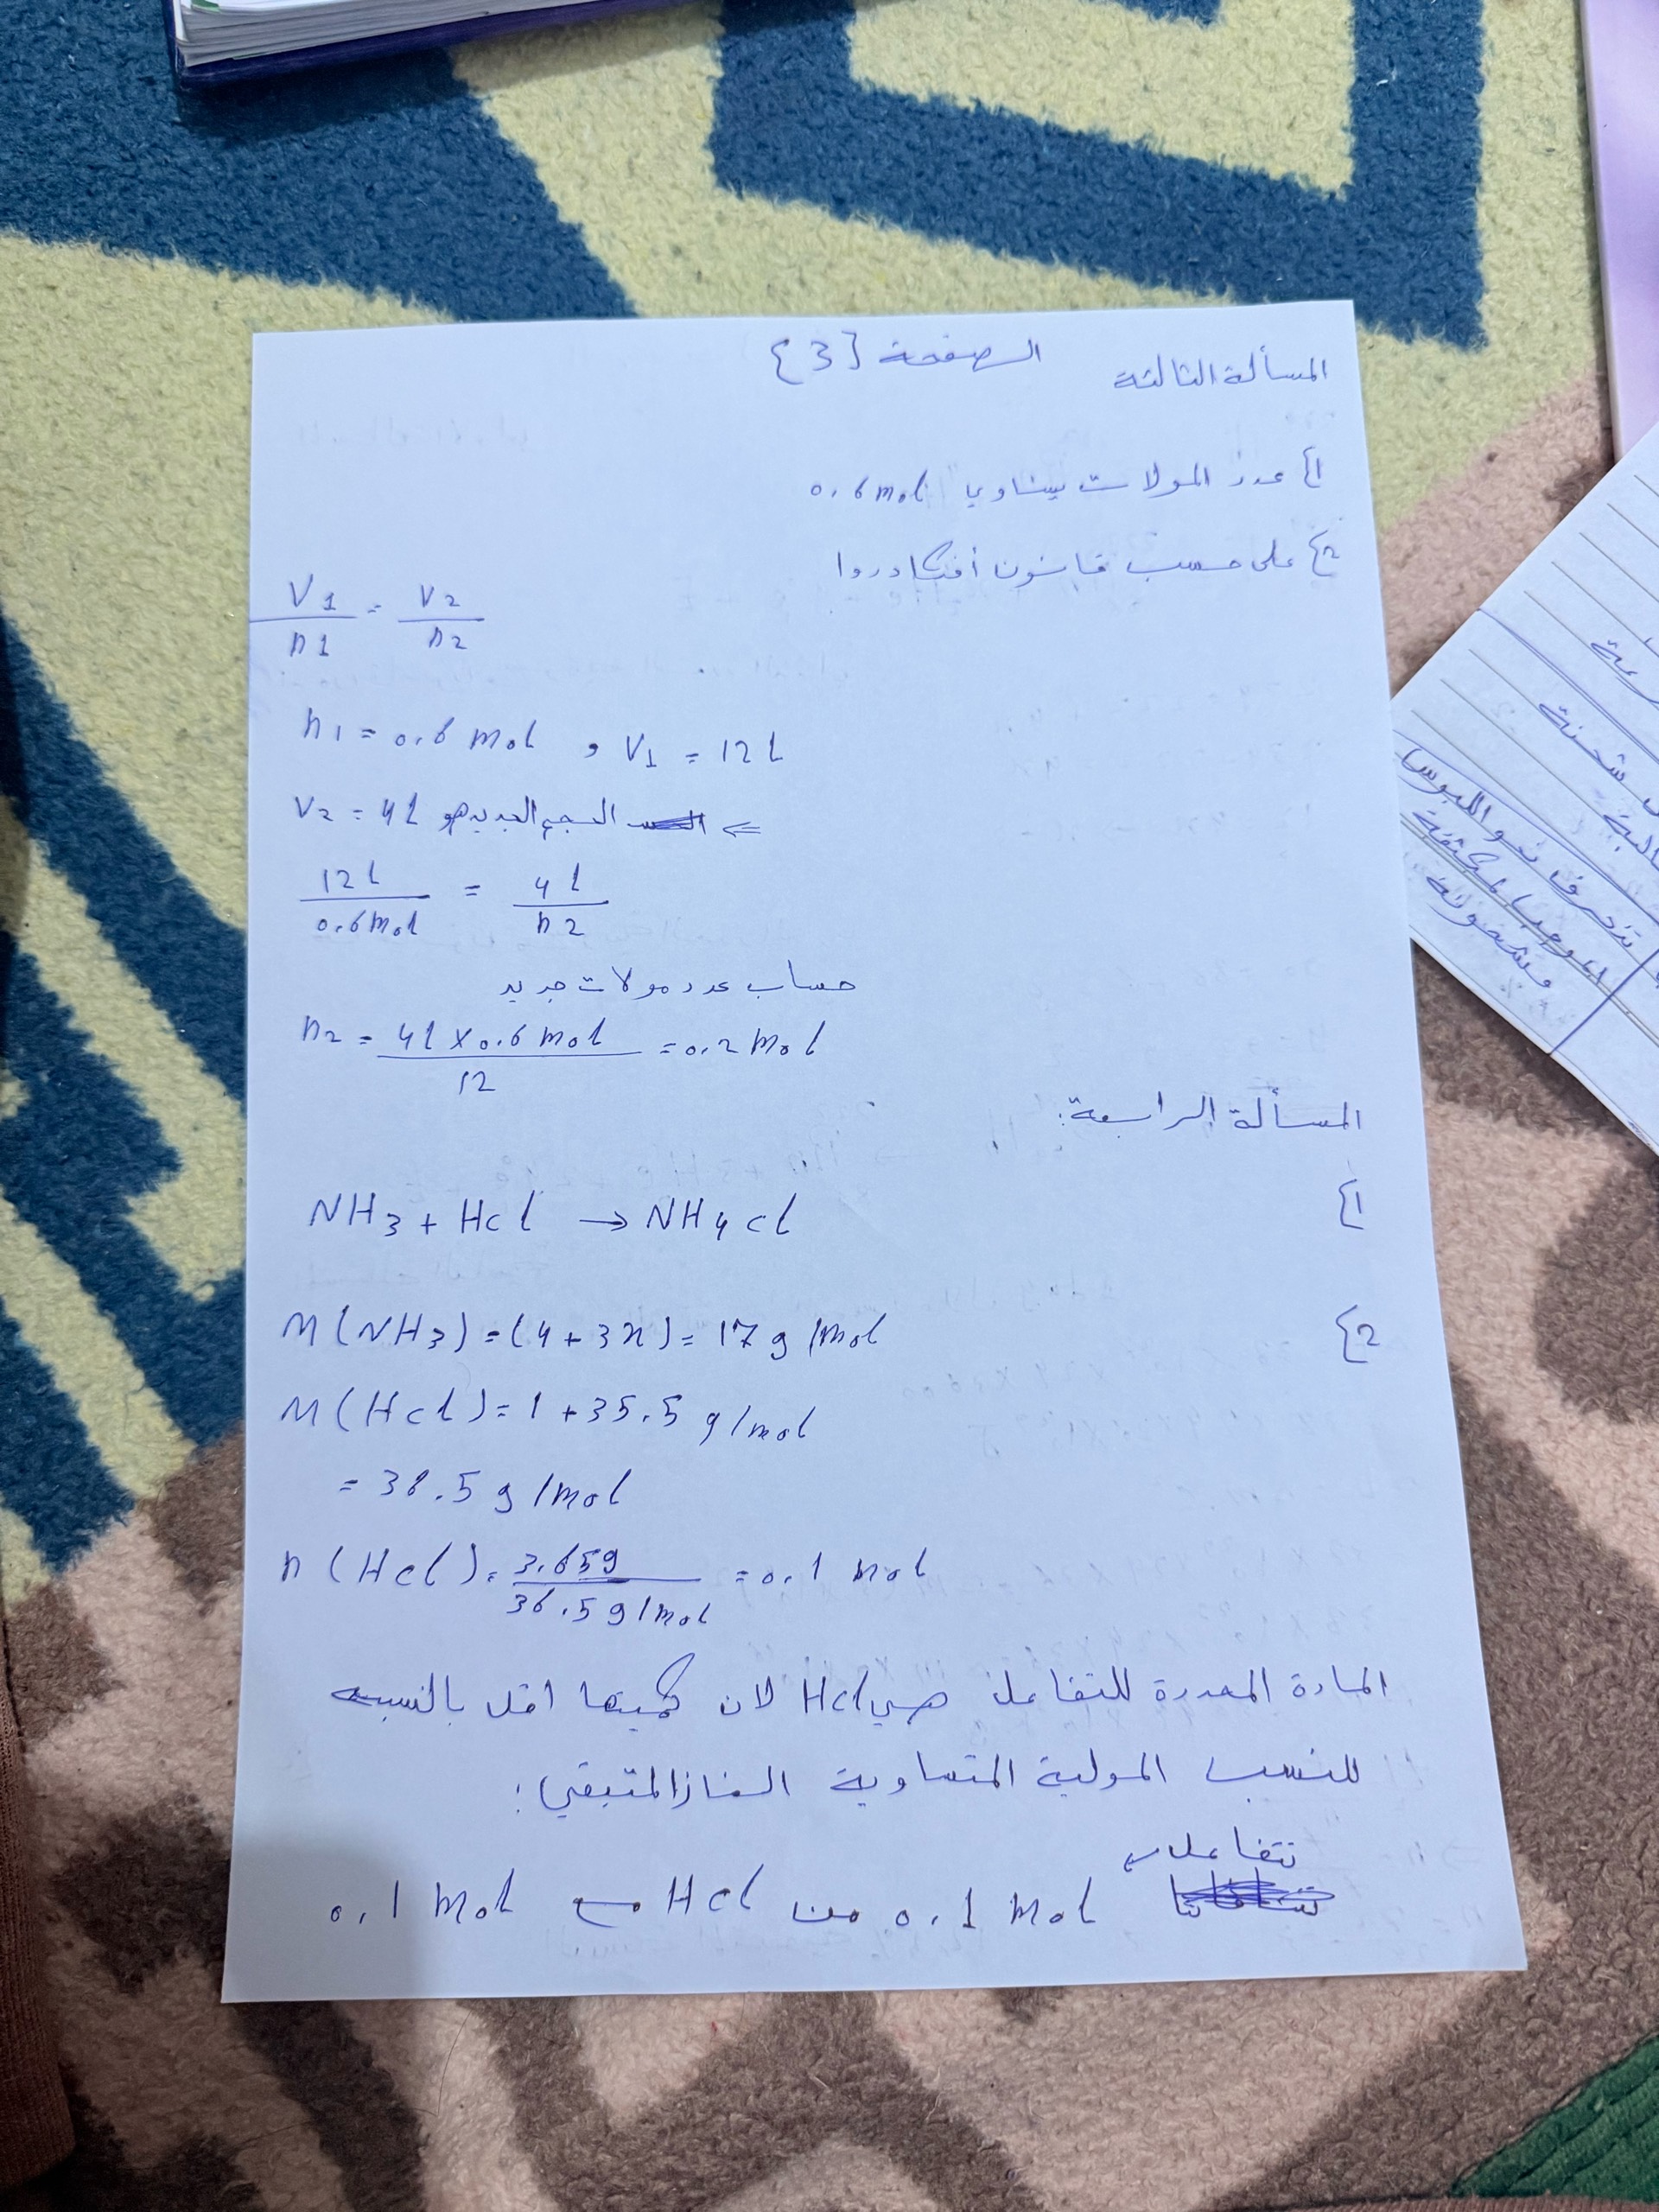 الصفحة {3}
المسألة الثالثة
1} عدد المولات يساوي 0.6 mol
2} على حسب قانون أفوكادروا
V1/n1 = V2/n2
n1 = 0.6 mol , V1 = 12 l
⇐ الحجم الجديد هو V2 = 4l
12 l / 0.6 mol = 4 l / n2
حساب عدد مولات جديد
n2 = 4l x 0.6 mol / 12 = 0.2 mol
المسألة الرابعة:
1}
NH3 + Hcl → NH4cl
2}
M(NH3) = (4 + 3x) = 17 g/mol
M(Hcl) = 1 + 35.5 g/mol
= 36.5 g/mol
n(Hcl) = 3.65g / 36.5 g/mol = 0.1 mol
المادة المحددة للتفاعل هي Hcl لان كميتها اقل بالنسبه
للنسب المولية المتساوية الغاز المتبقي:
تتفاعل
0.1 mol من Hcl مع 0.1 mol
شحنة
تنحرف نحو اللبوس
الموجب المكثفة
مشحونة